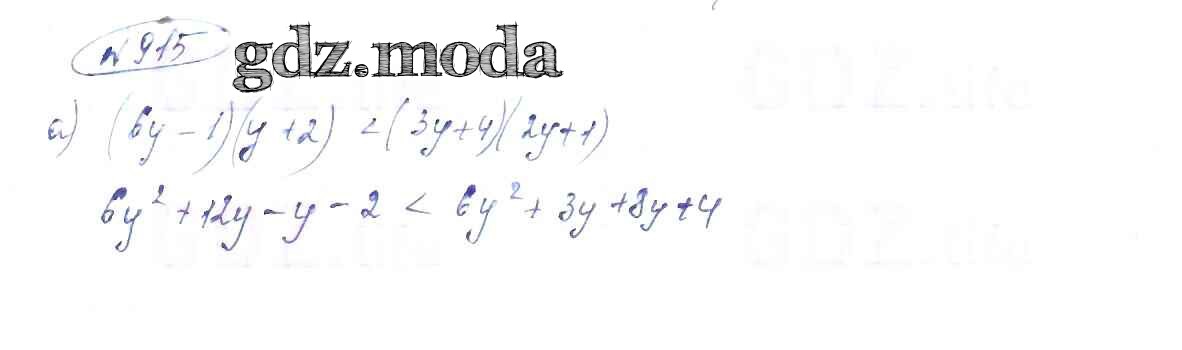 №915 gdz.moda
а) (6y-1)(y+2) < (3y+4)(2y+1)
6y²+12y-y-2 < 6y²+3y+8y+4